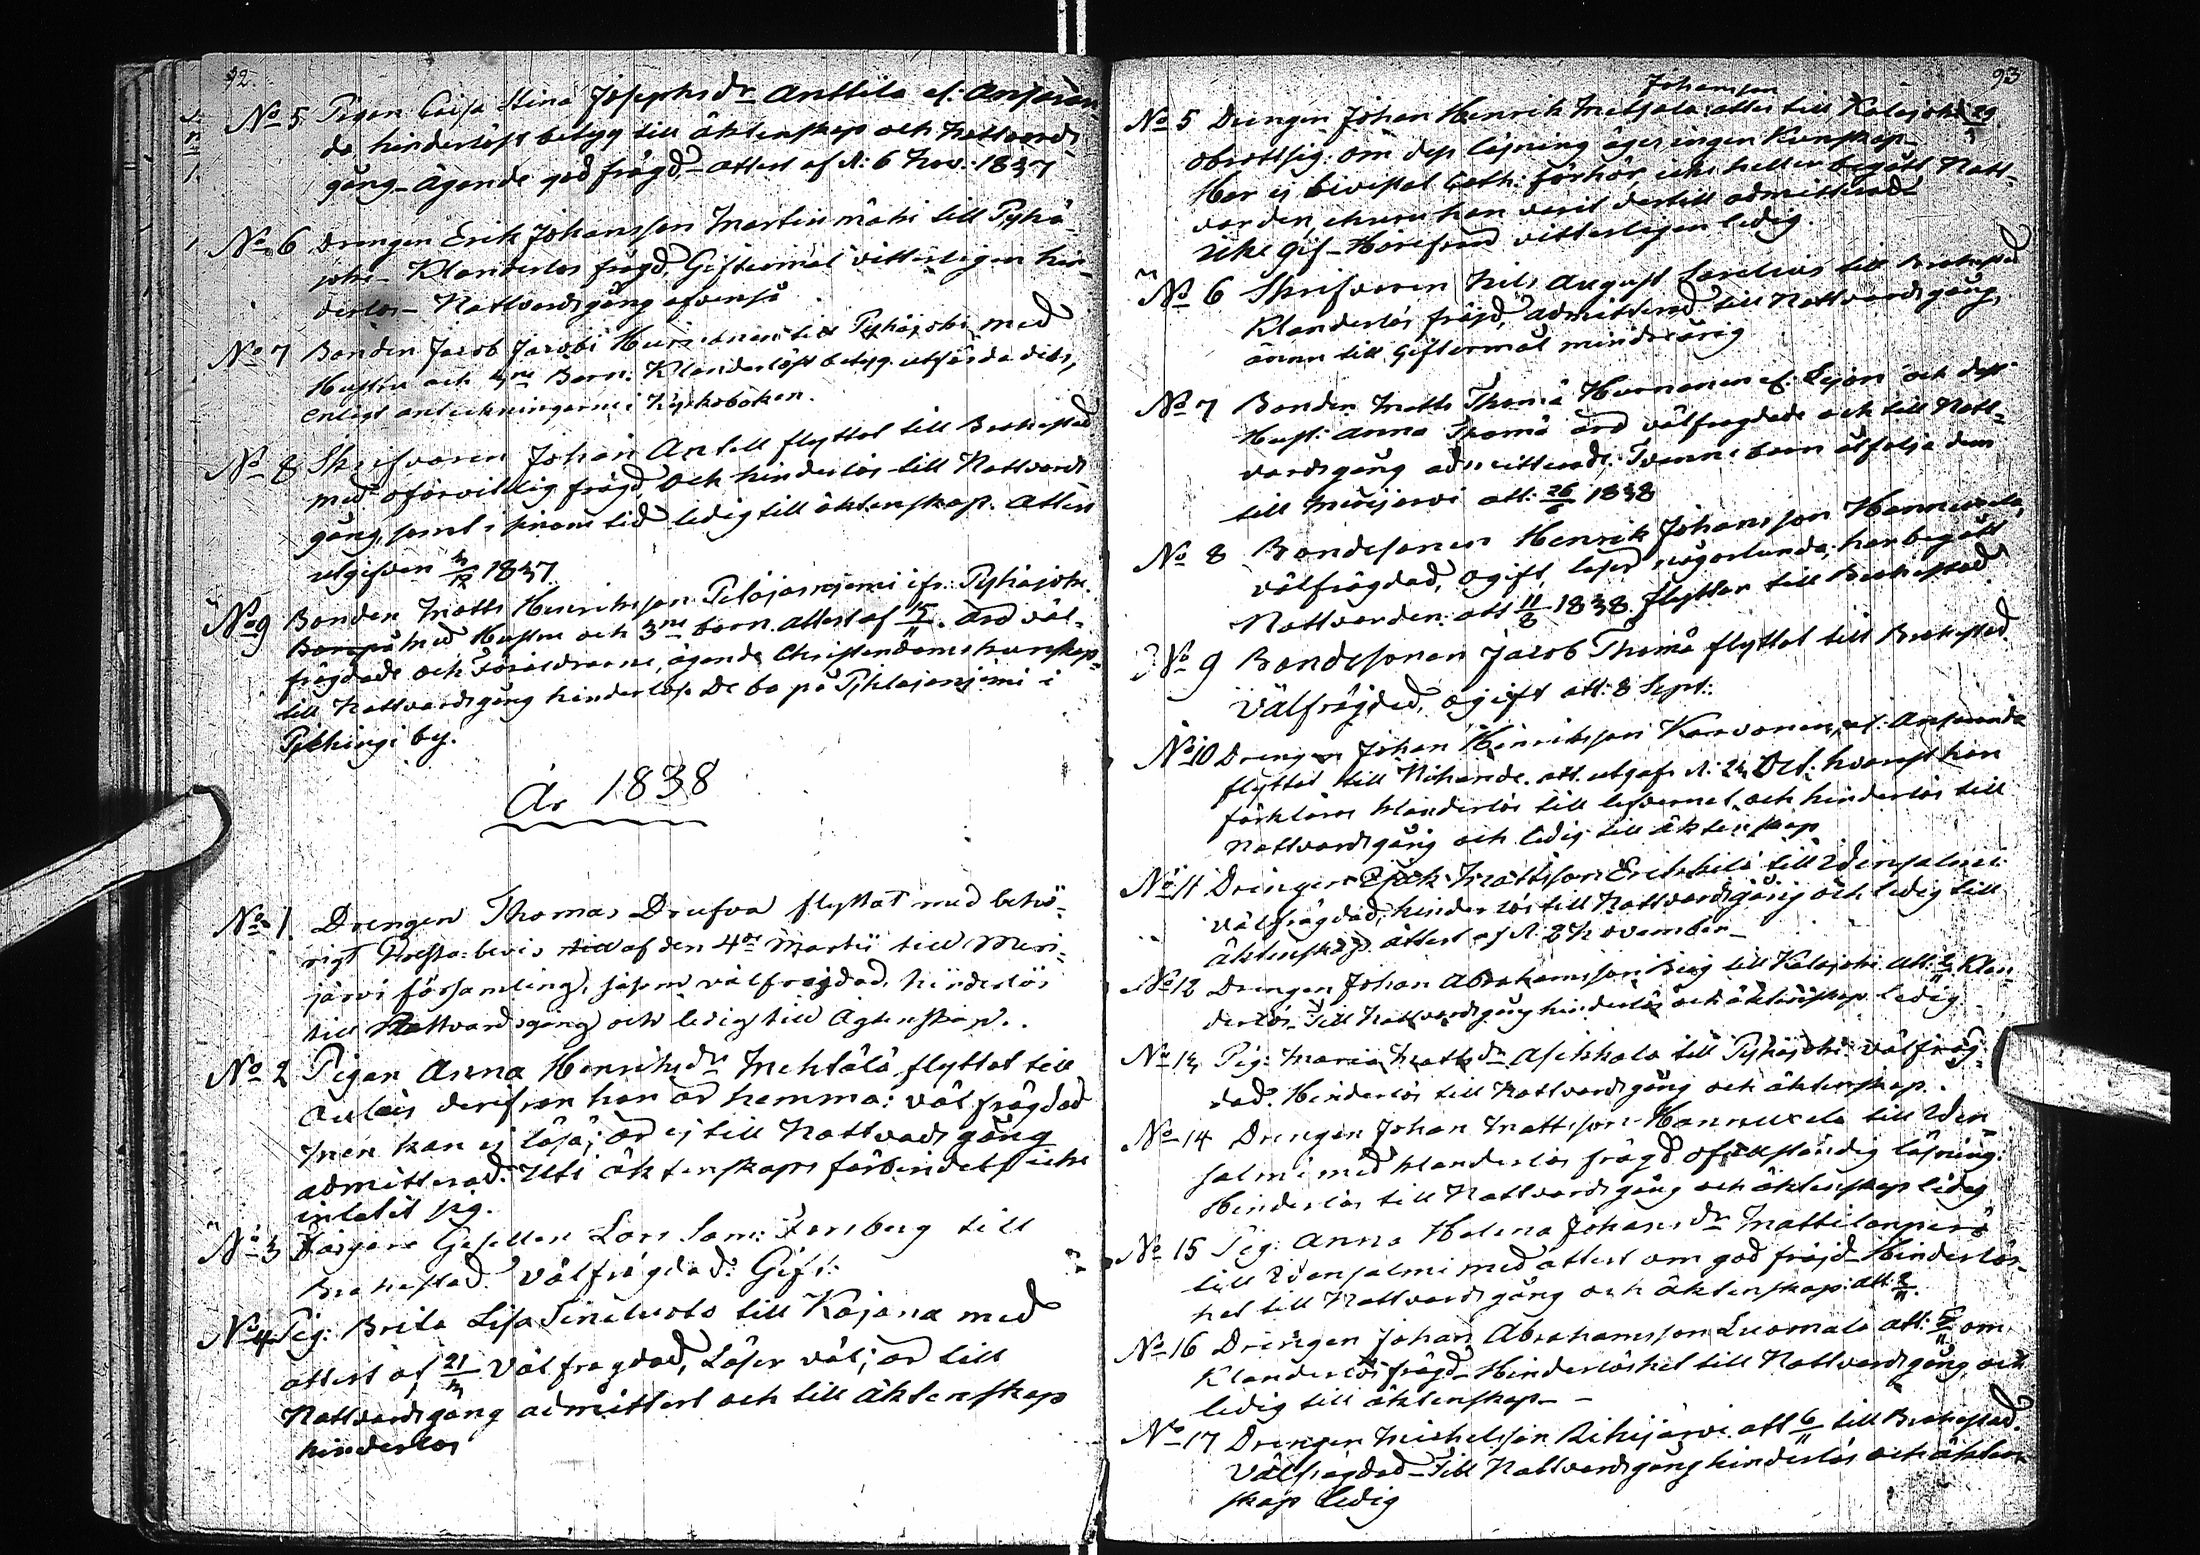 92.
No 5 Pigan Caisa Stina Josephsdr Anttila el: Anjärän-
da hinderlöst betyg till äktenskap och Nattvards-
gång – ägande god frägd, – attest af d: 6 Nov: 1837
No 6 Drengen Erik Johansson Martinmäki till Pyhä-
joki – Klanderlös frägd, Giftermål vitterligen hin-
derlös – Nattvardsgång äfvenså
No 7 Bonden Jacob Jacobi till Pyhäjoki med
Hustru och Barn: Klanderlöst betyg utfärdades,
enligt anteckningarne i Kyrkoboken.
No 8 Skrifvaren Johan Antell flyttat till Brahestad
med oförvitelig frägd och hinderlös till Nattvards
gång, samt i sinom tid ledig till äktenskap. Attest
utgifven 4/12 1837.
No 9 Bonden Matts Henriksson Pelajasniemi ifr: Pyhäjoki
med Hustru och 3ne barn. attest af 15/11. äro väl-
frägdade och Föräldrarne, ägande Christendoms kunskap
till Nattvardsgång hinderlösa. De bo på i
Pyhingi by.
År 1838
No 1. Drengen Thomas Drufva flyttat med behö-
rigt Presta-bevis till af den 4de Martii till Meri-
järvi församling, såsom välfrägdad, hinderlös
till Nattvardsgång och ledig till Äktenskap.
No 2 Pigan Anna Henriksdr Mehtälä flyttat till
derifrån hon är hemma: välfrägdad
men kan ej läsa; är ej till Nattvards gång
admitterad. Uti äktenskaps förbindelse icke
inlåtit sig.
No 3 Färgare Gesellen Lars Sam: Forsberg till
Brahestad. Välfrägdad. Gift:
No 4 Pig: Brita Lisa till Kajana med
attest af 21/4 Välfrägdad, Läser väl; är till
Nattvardsgång admittert och till äktenskap
hinderlös
93
Johansson
No 5 Drengen Johan Henrik Metsälä attes till Kalajoki 29
obrottslig: om dess läsning äges ingen Kunskap
Har ej bivistat Cath: förhör, icke heller begått Natt-
varden, ehuru han varit dertill admitterad
Icke Gif – Häresom vitterligen ledig.
No 6 Skrifvaren Nils August Sarelius till Brahestad
Klanderlös frägd, admitterad till Nattvardsgång,
ännu till Giftermål minderårig
No 7 Bonden Matts Thomä Hurnanen el. Lejon och dess
Hust: Anna Thomä äro välfrägdade och till Natt-
vardsgång admitterade. Tvenne barn åtfölja dem
till Merijärvi att: 26/6 1838
No 8 Bondesonen Henrik Johansson Hannuxela,
välfrägdad, ogift, läser någorlunda, har begått
Nattvarden. att 11/8 1838. flyttar till Brahestad
No 9 Bondesonen Jacob Thomä flyttat till Brahestad
Välfrägdad, ogift att: 8 Sept:
No 10 Drengen Johan Henriksson Karvonen, el. Anjäända
flyttat till att. utgafs d: 24 Oct. hvarest han
förklaras klanderlös till lefvernet och hinderlös till
Nattvardsgång och ledig till äktenskap
No 11 Drengen Erik Mattsson Erkkilä till Idensalmi
välfrägdad, hinderlös till Nattvardsgång och ledig till
äktenskap. attest af d. 2 November –
No 12 Drengen Johan Abrahamsson Berg till Kalajoki att: Klan-
derlös. Till Nattvardsgång hinderlös och äktenskap ledig
No 13 Pig: Maria Mattsdr Asikkala till Pyhäjoki välfräg-
dad. Hinderlös till Nattvardsgång och äktenskap.
No 14 Drengen Johan Mattsson Hannuxela till Iden-
salmi med klanderlös frägd, läsning:
Hinderlös till Nattvardsgång och äktenskap ledig
No 15 Pig: Anna Helena Johansdr Mattilanperä
till Idensalmi med attest om god frejd – Hinderlös-
het till Nattvardsgång och äktenskap. att: 2/11.
No 16 Drengen Johan Abrahamsson Luomala att: 5/11 om
Klanderlös frägd – Hinderlöshet till Nattvardsgång, och
ledig till äktenskap – –
No 17 Drengen Michelsson Kihijärvi att 6/11 till Brahestad.
Välfrägdad – Till Nattvardsgång hinderlös och äkten-
skap ledig